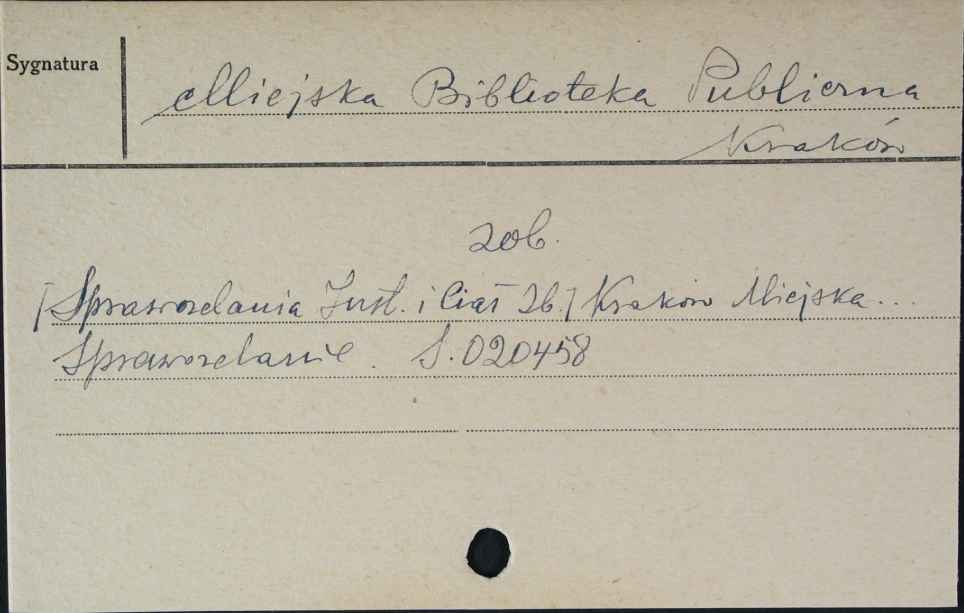 Sygnatura
Miejska Biblioteka Publiczna
Kraków
zob.
[Sprawozdania Inst. i Ciał Zb.] Kraków Miejska...
Sprawozdanie. S. 020458